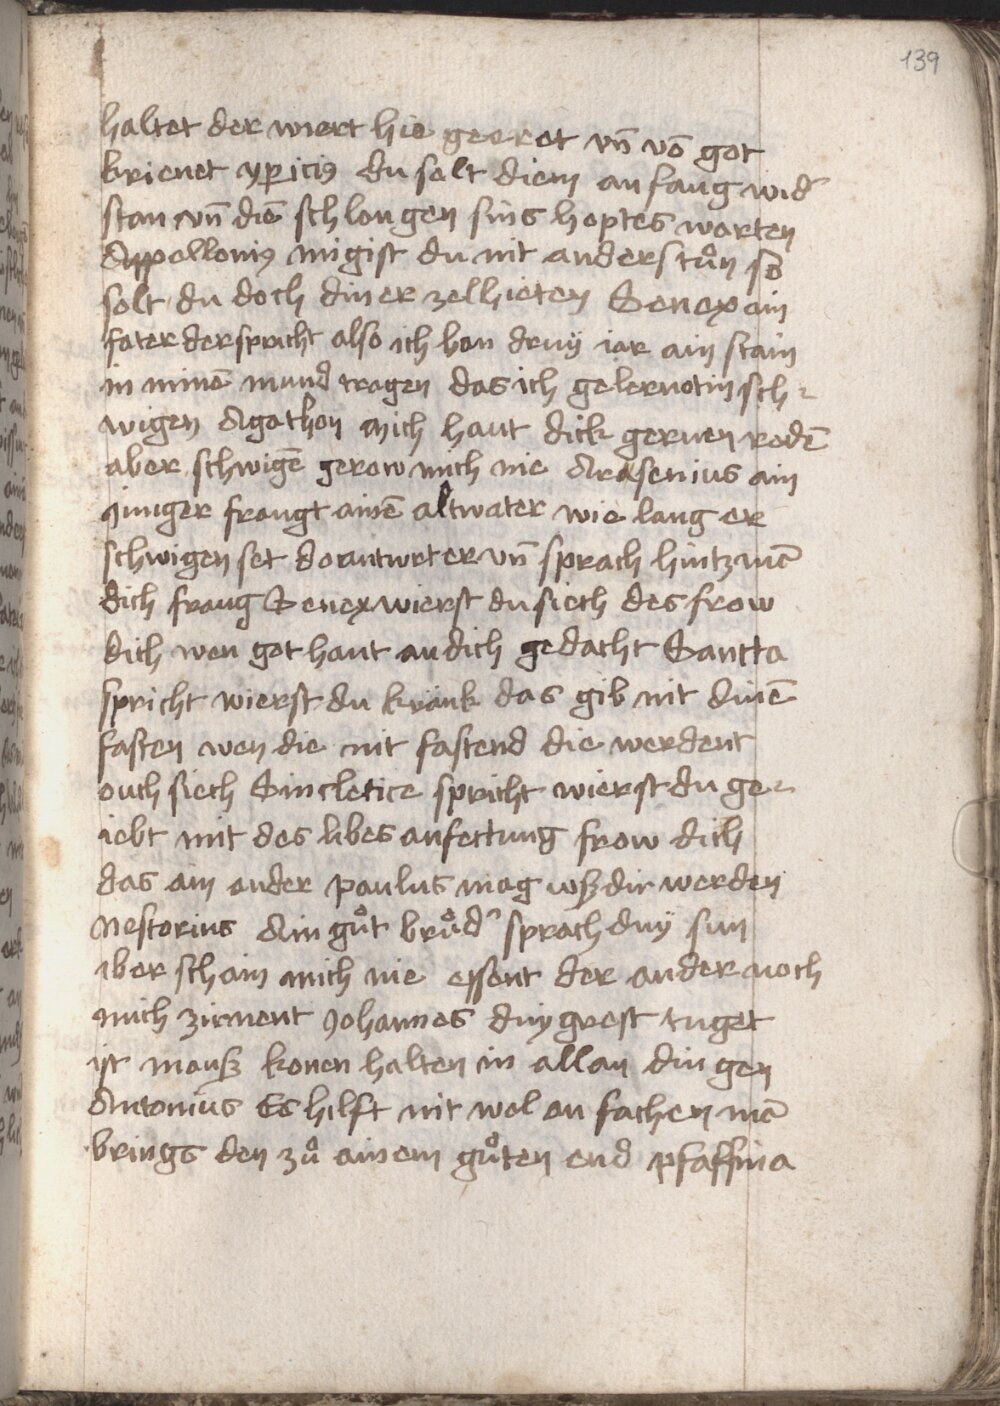 139
haltet der wiert hie geeret vn̄ vō got
brienet yꝑiciꝰ du solt diem anfang wid᷑
stan vn̄ diē schlangen sins hoptes warten
Appolloniꝰ migist du nit anders tůn so
solt du doch din er zell hieten Senex ain
fater der spricht also ich han druÿ iar ain stain
in minē mund tragen das ich gelernotin sch-
wigen Agathon mich haut dick geruen redē
aber schwigē gerow mich nie Arsenius ain
Junger fraugt ainē altvater wie lang er
schwigen set do antwrt er vn̄ sprach hintz mā
dich fraug Senex wierst du siech des frow
dich wen got haut an dich gedacht Santta
spricht wierst du kränk das gib nit dinē
fasten wen die nit fastend die werdent
ouch siech Sincletice spricht wierst du ge-
iebt mit des libes anfettung frow dich
das ain ander paulus mag vß dir werden
Nestorius Ain gůt brůd᷑ sprach duÿ sun
iber schain mich nie essent der ander noch
mich zirnent Johannes duÿ grost tuget
ist mauß konen halten in allan dingen
Antonius Es hilft nit wol an fachen mā
brings den zů ainem gůten end pfaffina